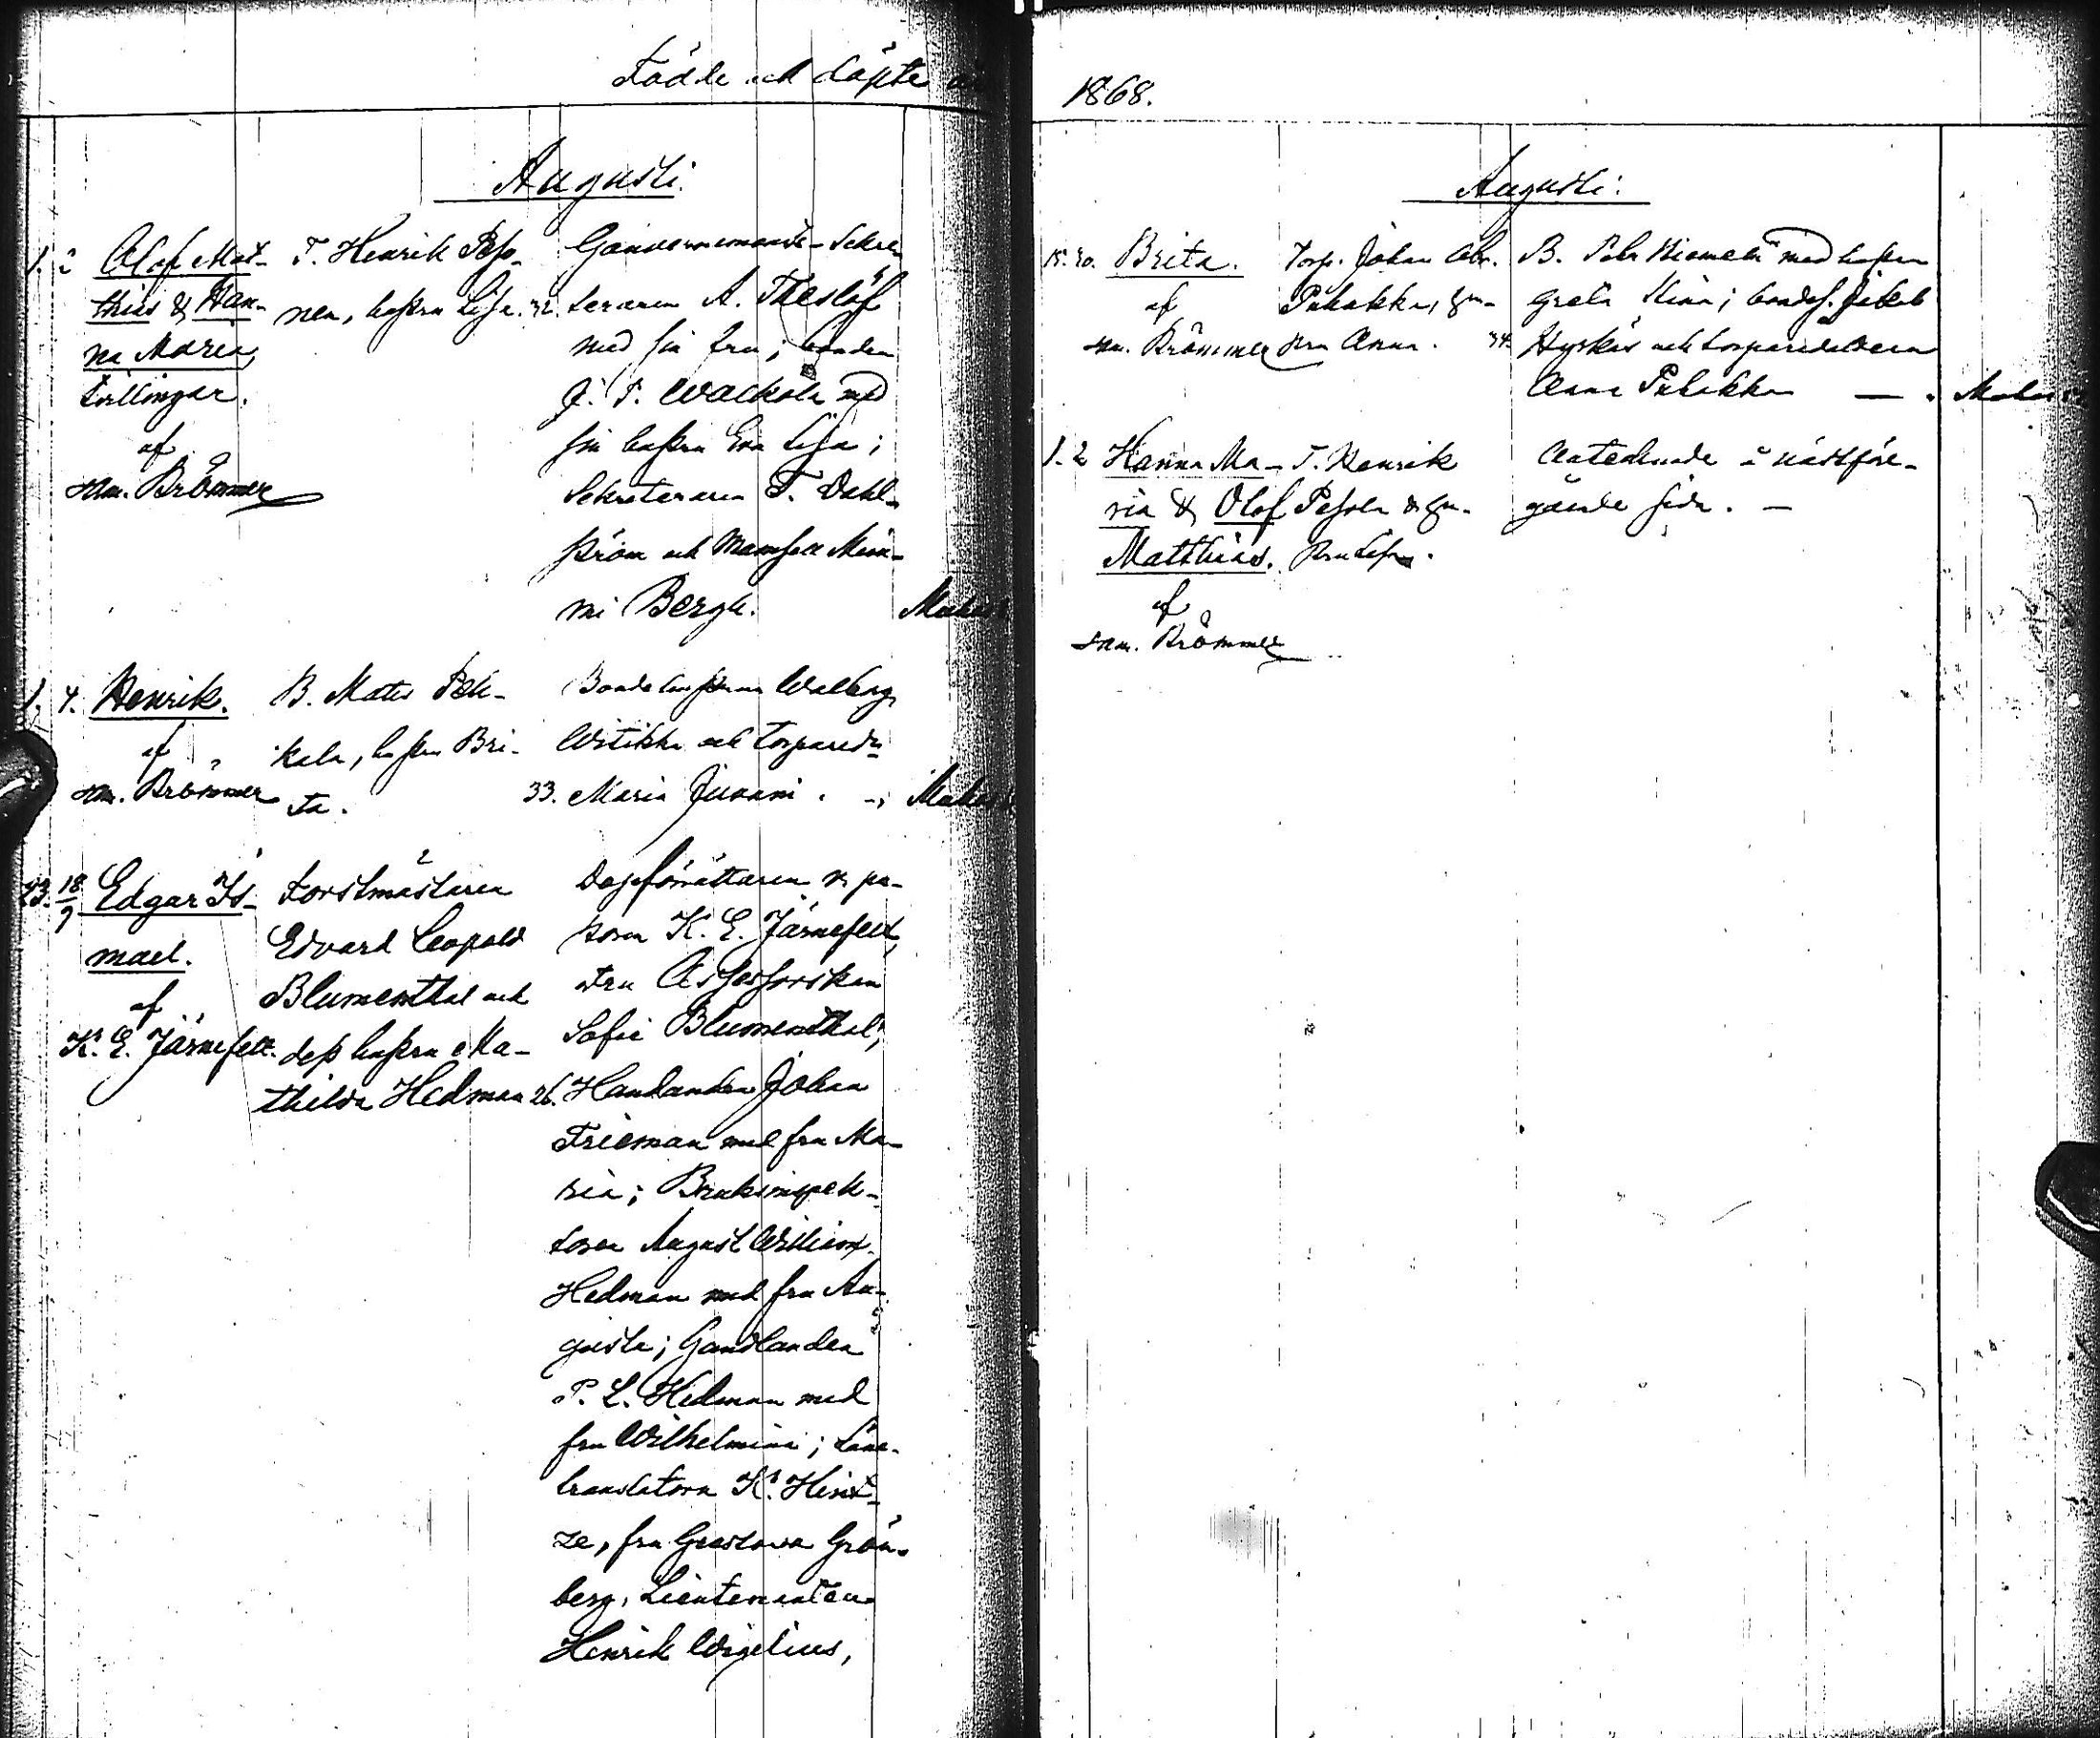 Födde och döpte
Augusti.
1. 2 Olof Mat-
thias & Han-
na Maria,
tvillingar.
af
Brömmer
T. Henrik Peso-
nen, hustru Lisa. 32.
Gouvernements-Sekre-
teraren A. Theslöf
med sin fru; bonden
J. P. Wackola med
sin hustru Eva Lisa;
Sekreteraren F. Dahl-
ström och Mamsell Min-
ni Bergh.
1. 4. Henrik.
af
Brömmer
B. Matts Pek-
kala, hustru Bri-
ta. 33.
Bondehustrun Walborg
Witikka och torpareds
Maria Junani.
23. 18/9 Edgar Is-
mael.
af
K. E. Järnefelt.
Forstmästaren
Edvard Leopold
Blumenthal och
dess hustru Ma-
thilda Hedman 26.
Dopförrättaren pa-
storn K. E. Järnefelt,
Assessorskan
Sofie Blumenthal;
Handlanden Johan
Frieman med fru Ma-
ria; Bruksinspek-
toren August William
Hedman med fru Au-
gusta; Handlanden
P. L. Hedman med
fru Wilhelmina; Läne-
translatorn K. Hint-
ze, fru Gustava Grön-
berg, Lieutenanten
Henrik Wigelius,
1868.
Augusti.
15. 20. Brita.
af
Brömmer
Torp. Johan Abr.
Pukakka, hu-
stru Anna. 34.
B. Pehr Niemelä med hustru
Greta Stina; bondes. Jakob
Hyskäs och torparedottern
Anna Pukakka
1. 2 Hanna Ma-
ria & Olof
Matthias.
af
Brömmer
T. Henrik
hu-
stru Lisa.
Antecknade å nästföre-
gående sida.